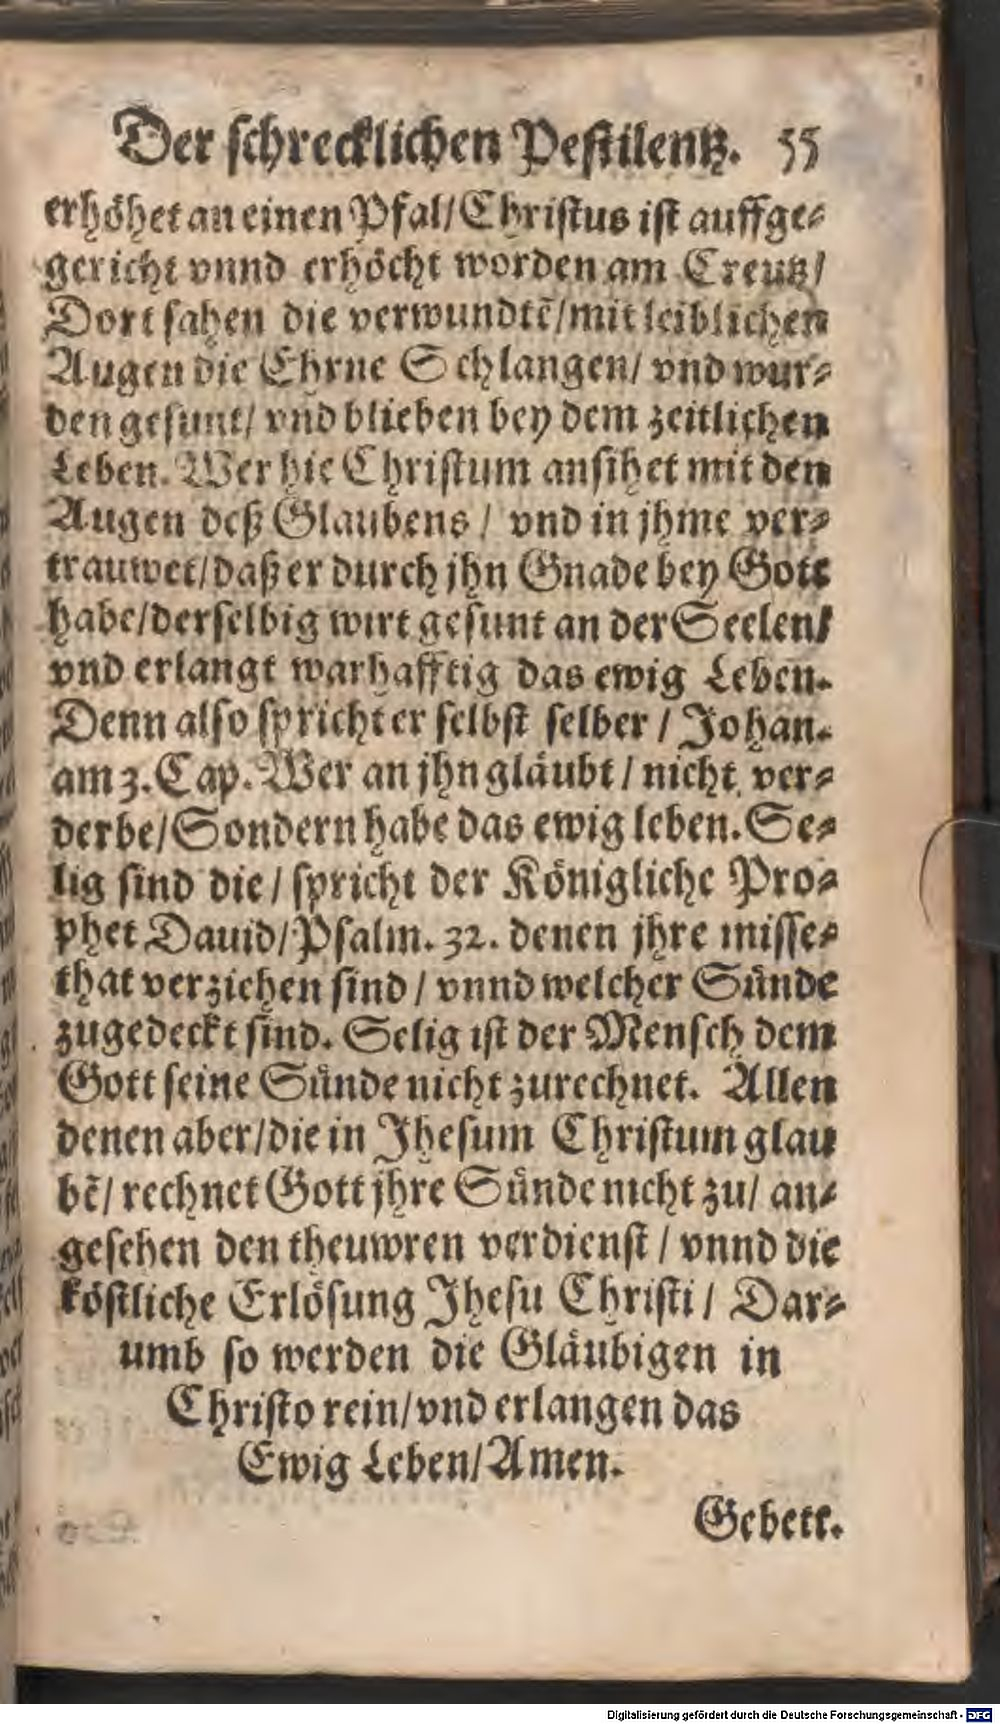 Der schrecklichen Pestilentz. 55
erhöhet an einen Pfal/Christus ist auffge⸗
gericht vnnd erhöcht worden am Creutz/
Dort sahen die verwundtẽ/mit leiblichen
Augen die Ehrne Schlangen/ vnd wur⸗
den gesunt/ vnd blieben bey dem zeitlichen
Leben. Wer hie Christum ansihet mit den
Augen deß Glaubens / vnd in jhme ver⸗
trauwet/daß er durch jhn Gnade bey Gott
habe/derselbig wirt gesunt an der Seelen/
vnd erlangt warhafftig das ewig Leben.
Denn also spricht er selbst selber / Johan.
am 3. Cap. Wer an jhn gläubt / nicht ver⸗
derbe/Sondern habe das ewig leben. Se⸗
lig sind die / spricht der Königliche Pro⸗
phet Dauid/Psalm. 32. denen jhre misse⸗
that verziehen sind / vnnd welcher Sünde
zugedeckt sind. Selig ist der Mensch dem
Gott seine Sünde nicht zurechnet. Allen
denen aber/die in Jhesum Christum glau
bẽ/ rechnet Gott jhre Sünde nicht zu/ an⸗
gesehen den theuwren verdienst / vnnd die
köstliche Erlösung Jhesu Christi / Dar⸗
umb so werden die Gläubigen in
Christo rein/vnd erlangen das
Ewig Leben/Amen.
Gebett.
Digitalisierung gefördert durch die Deutsche Forschungsgemeinschaft - DFG